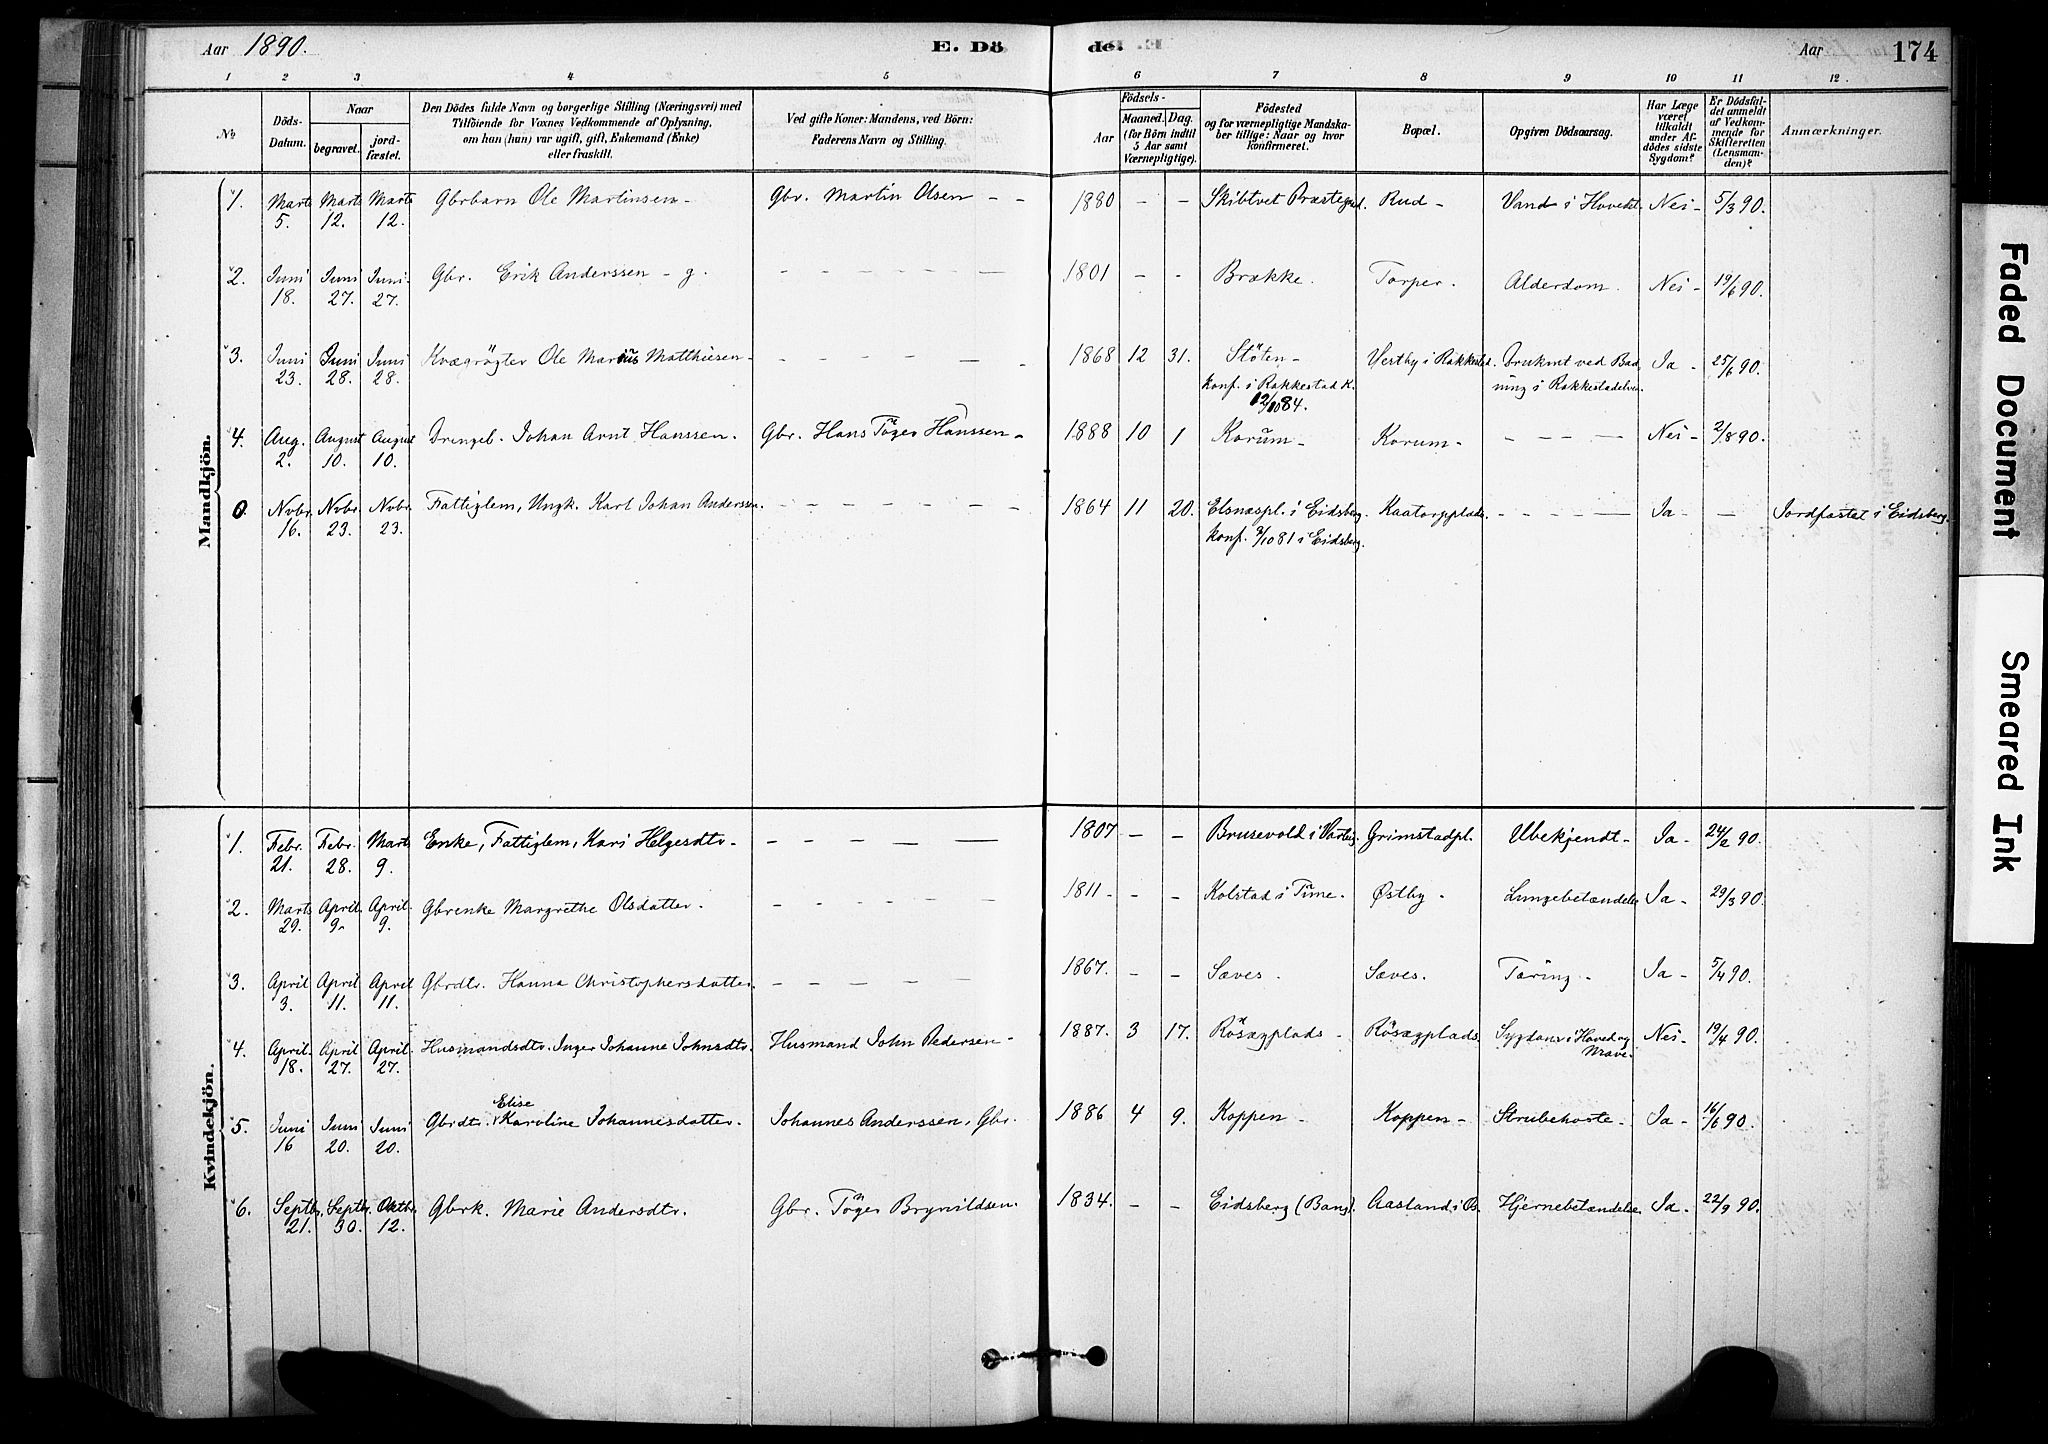 Aar 1890.
E. Döde.
Aar
174
1 2 3 4 5 6 7 8 9 10 11 12.
No
Döds-Datum.
Naar
begravet.
jordfæstet.
Den Dödes fulde Navn og borgerlige Stilling (Næringsvei) med
Tilföiende for Voxnes Vedkommende af Oplysning,
om han (hun) var ugift, gift, Enkemand (Enke)
eller fraskilt.
Ved gifte Koner: Mandens, ved Börn:
Faderens Navn og Stilling.
Födsels-
Aar
Maaned. Dag.
(for Börn indtil
5 Aar samt
Værnepligtige).
Födested
og for værnepligtige Mandskaber tillige: Naar og hvor
konfirmeret.
Bopæl.
Opgiven Dödsaarsag.
Har Læge
været
tilkaldt
under Afdödes sidste
Sygdom?
Er Dödsfaldet anmeldt
af Vedkommende for
Skifteretten
(Lensmanden)?
Anmærkninger.
Mandkjön.
1. Marts 5. Marts 12. Marts 12. Gbrbarn Ole Martinsen - Gbr. Martin Olsen - - 1880 - - Skibtvet Præstegjd. Rud - Vand i Hovedt Nei - 5/3 90.
2. Juni 18. Juni 27. Juni 27. Gbr. Erik Anderssen - g. - - - - - 1801 - - Brække. Torper. Alderdom. Nei - 19/6 90.
3. Juni 23. Juni 28. Juni 28. Kvægrögter Ole Marius Matthiesen - - - - - - 1868 12 31. Stöten - Vestby i Rakkestad. Druknet ved Bad Ja - 25/6 90.
konf. i Rakkestad K. ning i Rakkestadelven.
12/10 84.
4. Aug. 2. August 10. August 10. Drengeb. Johan Arnt Hanssen. Gbr. Hans Töger Hanssen - 1888 10 1 Korum - Korum - - - - - Nei - 2/8 90.
0. Nvbr. 16. Nvbr. 23. Nvbr. 23. Fattiglem, Ungk. Karl Johan Anderssen. - - - - - 1864 11 20. Elsnæspl. i Eidsberg. Kaatorpplads. - - - - Ja - - Jordfæstet i Eidsberg.
konf. 2/10 81 i Eidsberg.
Kvindekjön.
1. Febr. 21. Febr. 28. Marts 9. Enke, Fattiglem, Kari Helgesdtr. - - - - - 1807 - - Brusevold i Varteig. Grimstadpl. Ubekjendt - Ja - 24/2 90.
2. Marts 29. April 9. April 9. Gbrenke Margrethe Olsdatter. - - - - - 1811 - - - Kolstad i Tune. Østby - Lungebetændelse Ja - 29/3 90.
3. April 3. April 11. April 11. Gbrdtr. Hanna Christophersdatter. - - - - - 1867. - - Sæves. Sæves. Tæring - Ja - 5/4 90.
4. April 18. April 27. April 27. Husmandsdtr. Inger Johanne Johnsdtr. Husmand John Pedersen - 1887. 3 17. Rösægplads - Rösægplads. Sygdom i Hoved og Mave. Nei - 19/4 90.
5. Juni 16 Juni 20. Juni 20. Gbrdtr. Elise Karoline Johannesdatter. Johannes Anderssen, Gbr. 1886 4 9. Koppen - Koppen - Strubehoste - Ja - 16/6 90.
6. Septbr. 21. Septbr. 30. Oktbr. 12. Gbrk. Marie Andersdtr. Gbr. Töger Brynildsen. 1834. - - Eidsberg (Bang). Aasland i Ø. Hjernebetændelse Ja - 22/9 90.
Faded Document
Smeared Ink